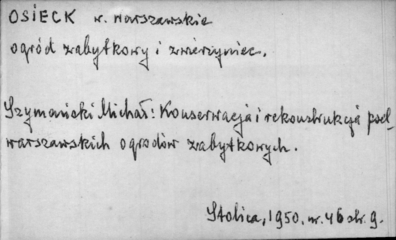 OSIECK w. warszawskie
ogród zabytkowy i zwierzyniec.
Szymański Michał: Konserwacja i rekonstrukcja pod-
warszawskich ogrodów zabytkowych.
Stolica, 1950. nr. 46 str. 9.